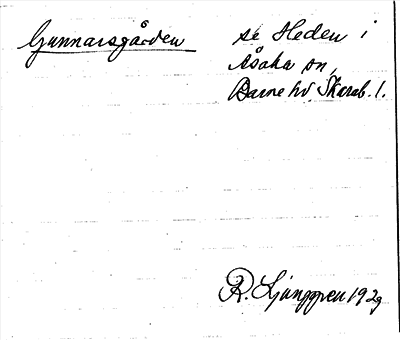 Gunnarsgården se Heden i
Åsaka sn,
Barne hd, Skarab. l.
R. Ljunggren 1929